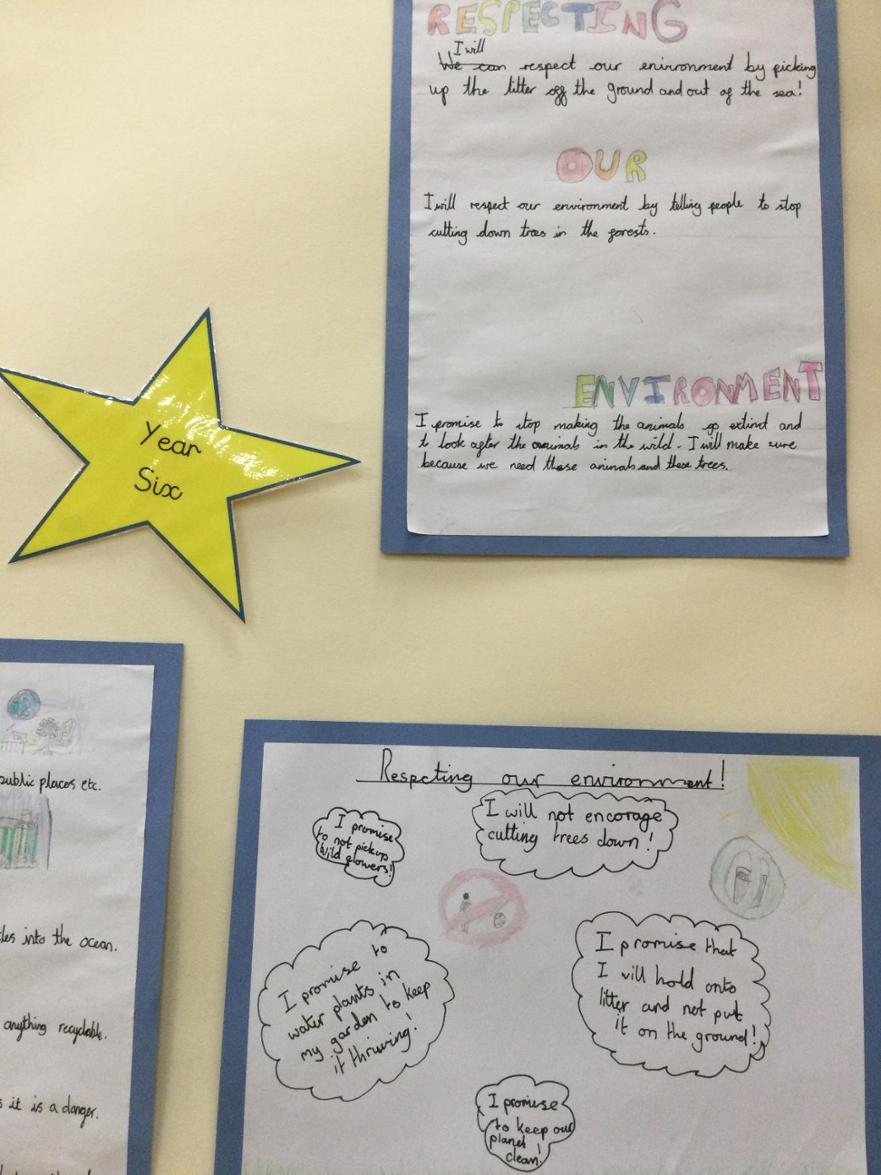 RESPECTING
I will
We can respect our enironment by picking
up the litter off the ground and out of the sea!
OUR
I will respect our environment by telling people to stop
cutting down trees in the forests.
ENVIRONMENT
I promise to stop making the animals go extind and
to look after the animals in the wild. I will make sure
because we need these animals and these trees.
Year
Six
public places etc.
into the ocean.
anything recyclable.
it is a danger.
Respecting our environment!
I promise
to not pick up
wild flowers!
I will not encorage
cutting trees down!
I promise to
water plants in
my garden to keep
it thriving!
I promise that
I will hold onto
litter and not put
it on the ground!
I promise
to keep our
planet
clean!